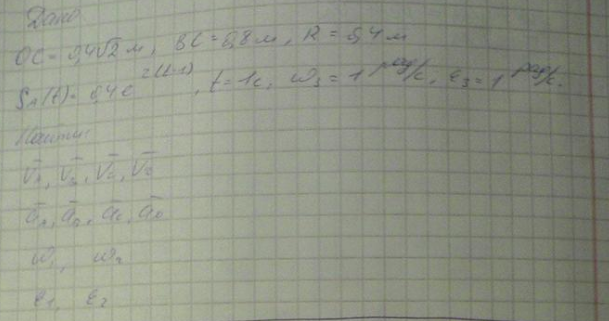 Дано
OC = 0,4√2 м, BC = 0,8 м, R = 0,4 м
S_A(t) = 0,4 e^{2(t-1)}, t = 1c, ω₃ = 1 рад/с, ε₃ = 1 рад/с.
Найти:
V̄_A, V̄_B, V̄_C, V̄
ā_A, ā_B, a_C, ā
ω₁, ω₂
ε₁, ε₂